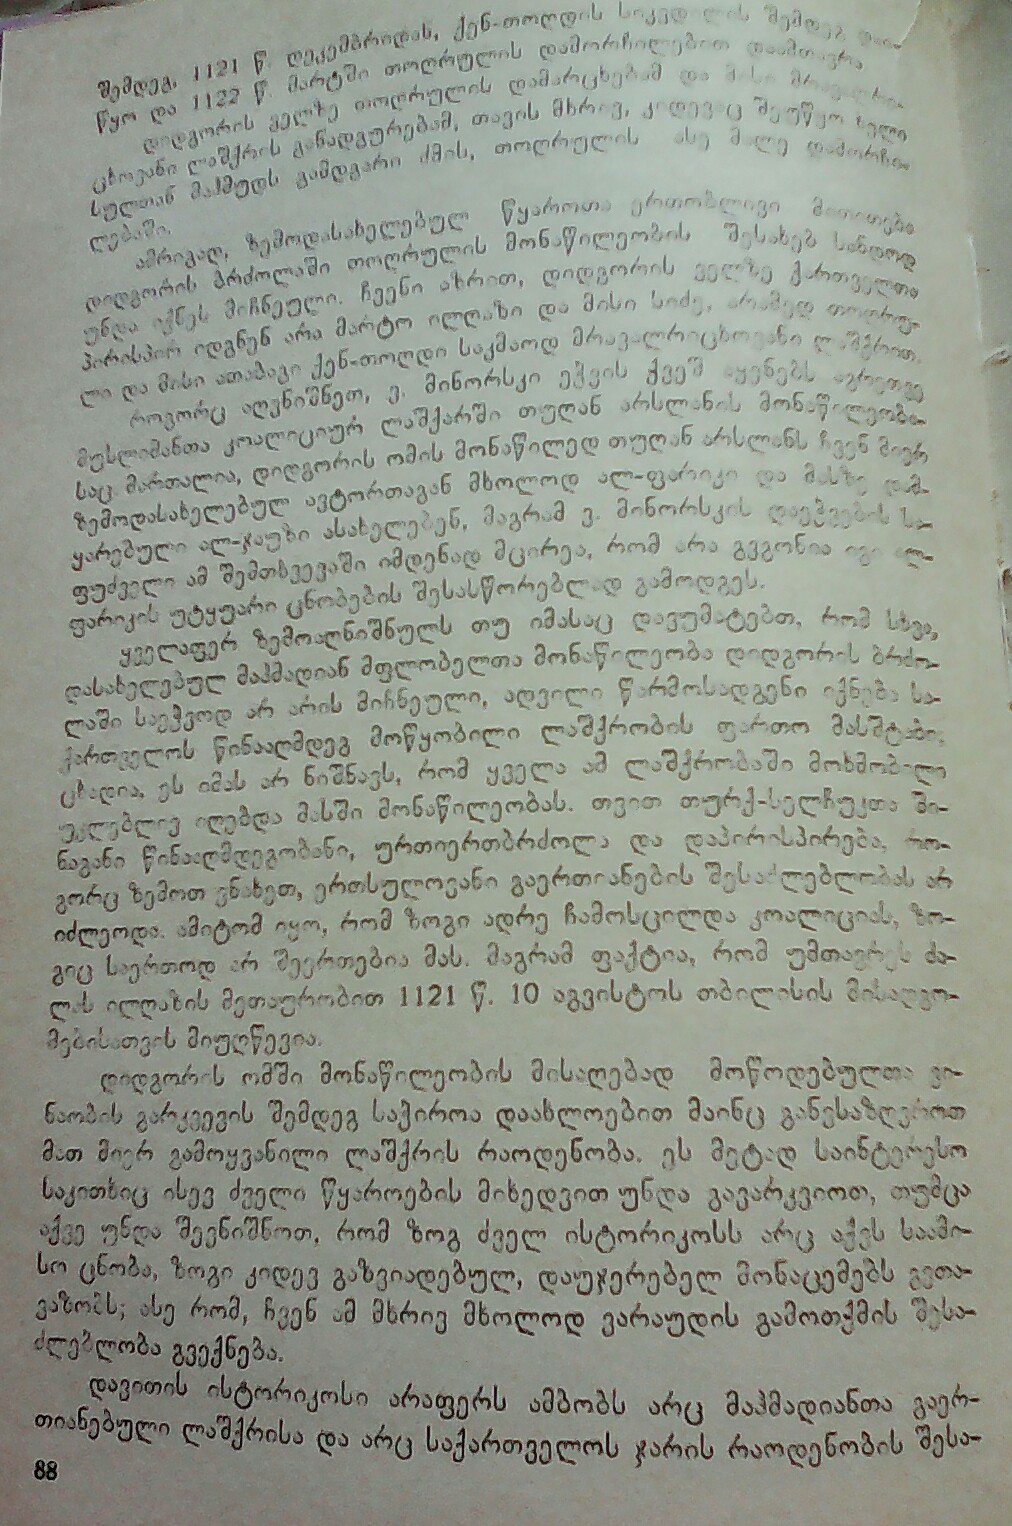 შემდეგ, 1121 წ. დეკემბრიდან, ქენ-თოღდის სიკვდილის შემდეგ დაი-
წყო და 1122 წ. მარტში თოღრულის დამორჩილებით დაამთავრა.
დიდგორის ველზე თოღრულის დამარცხებამ და მისი მრავალრი-
ცხოვანი ლაშქრის განადგურებამ, თავის მხრივ, კიდევაც შეუწყო ხელი
სულთან მაჰმუდს გამდგარი ძმის, თოღრულის ასე მალე დამორჩი-
ლებაში.
ამრიგად, ზემოდასახელებულ წყაროთა ერთობლივი მითითება
დიდგორის ბრძოლაში თოღრულის მონაწილეობის შესახებ სანდოდ
უნდა იქნეს მიჩნეული. ჩვენი აზრით, დიდგორის ველზე ქართველთა
პირისპირ იდგნენ არა მარტო ილღაზი და მისი სიძე, არამედ თოღრუ-
ლი და მისი ათაბაგი ქენ-თოღდი საკმაოდ მრავალრიცხოვანი ლაშქრით.
როგორც აღვნიშნეთ, ვ. მინორსკი ეჭვის ქვეშ აყენებს აგრეთვე
მუსლიმანთა კოალიციურ ლაშქარში თუღან არსლანის მონაწილეობა-
საც. მართალია, დიდგორის ომის მონაწილედ თუღან არსლანს ჩვენ მიერ
ზემოდასახელებულ ავტორთაგან მხოლოდ ალ-ფარიკი და მასზე დამ-
ყარებული ალ-ჯაუზი ასახელებენ, მაგრამ ვ. მინორსკის დაეჭვების სა-
ფუძველი ამ შემთხვევაში იმდენად მცირეა, რომ არა გვგონია იგი ალ-
ფარიკის უტყუარი ცნობების შესასწორებლად გამოდგეს.
ყველაფერ ზემოაღნიშნულს თუ იმასაც დავუმატებთ, რომ სხვა,
დასახელებულ მაჰმადიან მფლობელთა მონაწილეობა დიდგორის ბრძო-
ლაში საეჭვოდ არ არის მიჩნეული, ადვილი წარმოსადგენი იქნება სა-
ქართველოს წინააღმდეგ მოწყობილი ლაშქრობის ფართო მასშტაბი.
ცხადია, ეს იმას არ ნიშნავს, რომ ყველა ამ ლაშქრობაში მოხმობილი
უკლებლივ იღებდა მასში მონაწილეობას. თვით თურქ-სელჩუკთა ში-
ნაგანი წინააღმდეგობანი, ურთიერთბრძოლა და დაპირისპირება, რო-
გორც ზემოთ ვნახეთ, ერთსულოვანი გაერთიანების შესაძლებლობას არ
იძლეოდა. ამიტომ იყო, რომ ზოგი ადრე ჩამოსცილდა კოალიციას, ზო-
გიც საერთოდ არ შეერთებია მას. მაგრამ ფაქტია, რომ უმთავრეს ძა-
ლას ილღაზის მეთაურობით 1121 წ. 10 აგვისტოს თბილისის მისადგო-
მებისათვის მიუღწევია.
დიდგორის ომში მონაწილეობის მისაღებად მოწოდებულთა ვი-
ნაობის გარკვევის შემდეგ საჭიროა დაახლოებით მაინც განვსაზღვროთ
მათ მიერ გამოყვანილი ლაშქრის რაოდენობა. ეს მეტად საინტერესო
საკითხიც ისევ ძველი წყაროების მიხედვით უნდა გავარკვიოთ, თუმცა
აქვე უნდა შევნიშნოთ, რომ ზოგ ძველ ისტორიკოსს არც აქვს საამი-
სო ცნობა, ზოგი კიდევ გაზვიადებულ, დაუჯერებელ მონაცემებს გვთა-
ვაზობს; ასე რომ, ჩვენ ამ მხრივ მხოლოდ ვარაუდის გამოთქმის შესა-
ძლებლობა გვექნება.
დავითის ისტორიკოსი არაფერს ამბობს არც მაჰმადიანთა გაერ-
თიანებული ლაშქრისა და არც საქართველოს ჯარის რაოდენობის შესა-
88